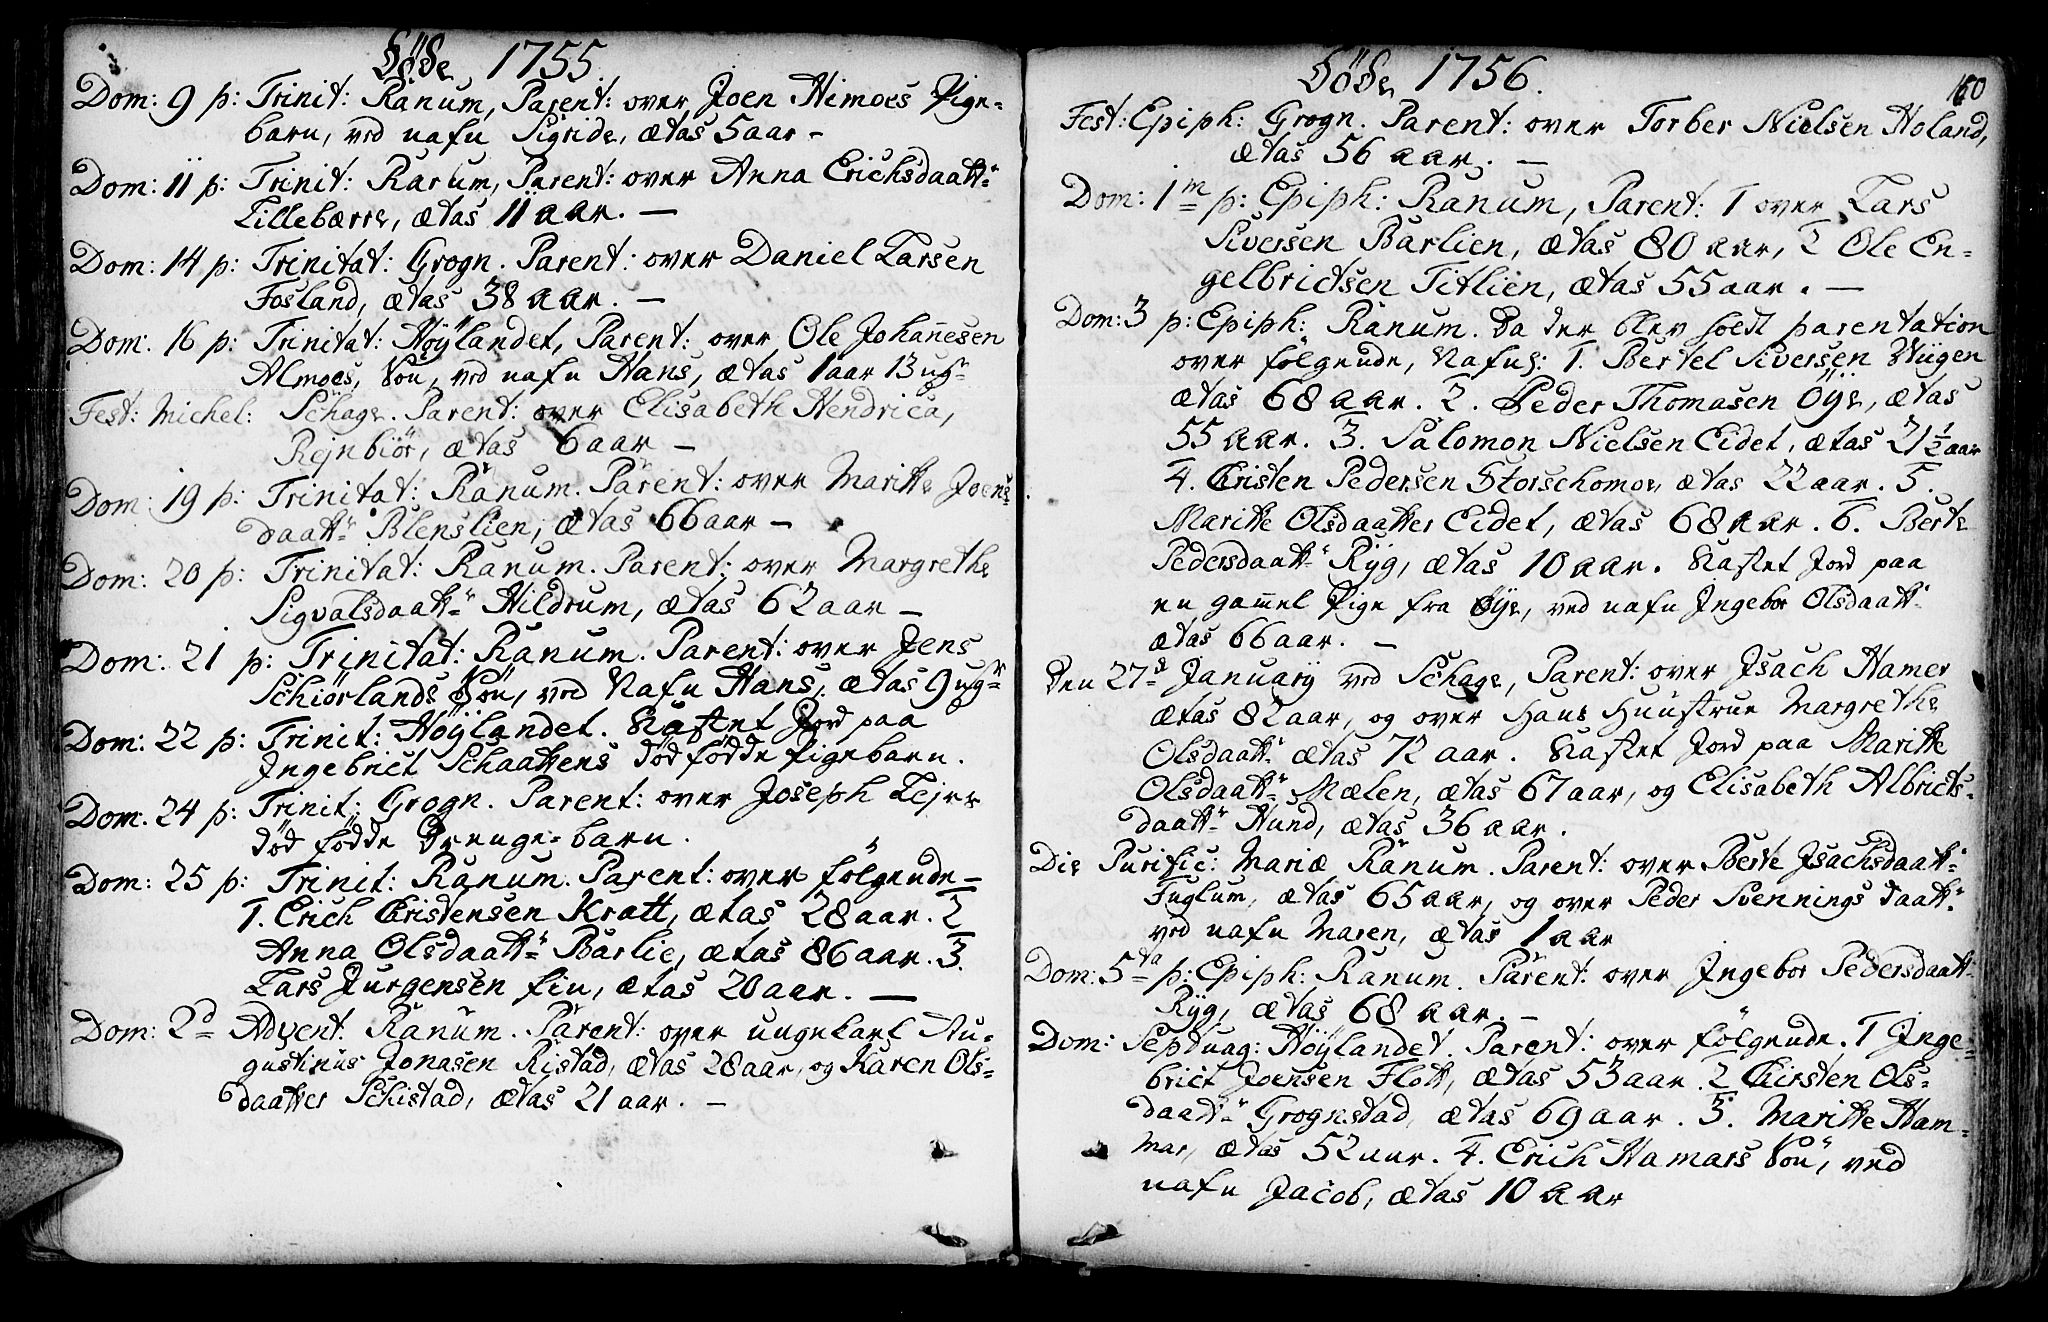 Døde 1755
Dom: 9 p: Trinit: Ranum, Parent: over Joen Himoes Pige-
barn, ved nafn Sigride, ætas 5 aar -
Dom: 11 p: Trinit: Ranum, Parent: over Anna Erichsdaatt:
Lillebærre, ætas 11 aar. -
Dom: 14 p: Trinitat: Grogn. Parent: over Daniel Larsen
Fosland, ætas 38 aar. -
Dom. 16 p: Trinitat: Høÿlandet, Parent: over Ole Johañesen
Almoes, Søn, ved nafn Hans, ætas 1 aar 13 ugr
Fest: Michel: Schage. Parent: over Elisabeth Hendrica,
Rejnbiør, ætas 6 aar -
Dom: 19 p: Trinitat: Ranum. Parent: over Maritte Joens
daatt: Blenslien, ætas 66 aar -
Dom: 20 p: Trinitat: Ranum. Parent: over Margrethe
Sigvalsdaatt: Hildrum, ætas 62 aar -
Dom: 21 p: Trinitat: Ranum. Parent: over Jens
Schiørlands Søn, ved Nafn Hans, ætas 9 ugr
Dom: 22 p: Trinit: Høÿlandet. Kastet Jord paa
Ingebrict Schaattens død fødde Pigebarn.
Dom. 24 p: Trinit: Grogn. Parent: over Joseph Lejre
død fødde Drenge-barn.
Dom: 25 p: Trinit: Ranum. Parent: over følgende -
1. Erich Christensen Kratt, ætas 28 aar. 2
Anna Olsdaatt: Barlie, ætas 86 aar. 3.
Lars Jurgensen fin, ætas 20 aar. -
Dom: 2d Advent. Ranum. Parent: over ungekarl Au-
gustinus Jonasen Ristad, ætas 28 aar, og Karen Ols-
daatter Schistad, ætas 21 aar. -
Døde 1756.
160
Fest: Epiph: Grogn. Parent: over Torber Nielsen Holand,
ætas 56 aar. -
Dom: 1m p: Epiph: Ranum, Parent: 1 over Lars
Siversen Barlien, ætas 80 aar, 2 Ole En-
gelbrictsen Titlien, ætas 55 aar. -
Dom: 3 p: Epiph: Ranum. Da der blev holdt parentation
over følgende, Nafnl: 1. Bertel Siversen Wiigen
ætas 68 aar. 2. Peder Thomasen Øÿe, ætas
55 aar. 3. Salomon Nielsen Eidet, ætas 21 1/2 aar
4. Christen Pedersen Storschomoe, ætas 22 aar. 5.
Maritte Olsdaatter Eidet, ætas 68 aar. 6. Berte
Pedersdaatt: Rÿg, ætas 10 aar. Kastet Jord paa
en gam̃el Pige fra Øÿe, ved nafn Ingebor Olsdaatt:
ætas 66 aar. -
Den 27d Januarÿ ved Schage, Parent: over Isach Hamer
ætas 82 aar, og over hans Huustrue Margrethe
Olsdaatt: ætas 72 aar. Kastet Jord paa Maritte
Olsdaatt: Mælen, ætas 67 aar, og Elisabeth Albricts-
daatt: Hund, ætas 36 aar.
Die Purific: Mariæ Ranum. Parent: over Berte Isachsdaatt:
Fuglum, ætas 65 aar, og over Peder Svennings daatt:
ved nafn Maren, ætas 1 aar
Dom: 5ta p: Epiph: Ranum. Parent: over Ingebor Pedersdaatt:
Rÿg, ætas 68 aar. -
Dom: Septuag: Høÿlandet. Parent: over følgende. 1 Inge-
brict Joensen Flott, ætas 53 aar. 2 Chirsten Ols-
daatt: Grognstad, ætas 69 aar. 3. Maritte Ham-
mar, ætas 52 aar. 4. Erich Hamars Søn, ved
nafn Jacob, ætas 10 aar